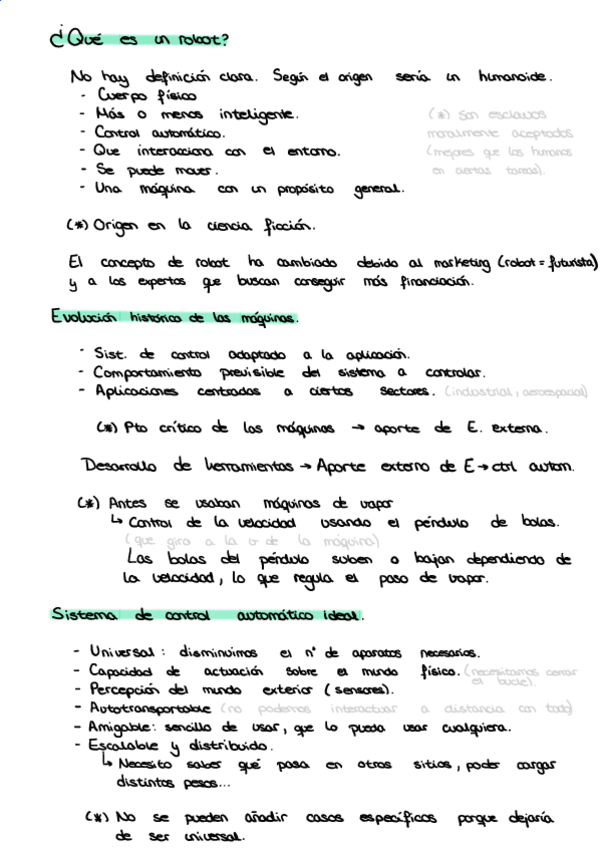 ¿Qué es un robot?
No hay definición clara. Según el origen sería un humanoide.
- Cuerpo físico
- Más o menos inteligente.
- Control automático.
- Que interacciona con el entorno.
- Se puede mover.
- Una máquina con un propósito general.
(*) Son esclavos
moralmente aceptados
(mejores que los humanos
en ciertas tareas).
(*) Origen en la ciencia ficción.
El concepto de robot ha cambiado debido al marketing (robot = futurista)
y a los expertos que buscan conseguir más financiación.
Evolución histórica de las máquinas.
- Sist. de control adaptado a la aplicación.
- Comportamiento previsible del sistema a controlar.
- Aplicaciones centradas a ciertos sectores. (industrial, aeroespacial)
(*) Pto crítico de las máquinas → aporte de E. externa.
Desarrollo de herramientas → Aporte externo de E → ctrl autom.
(*) Antes se usaban máquinas de vapor
↳ Control de la velocidad usando el péndulo de bolas.
(que gira a la v de la máquina)
Las bolas del péndulo suben o bajan dependiendo de
la velocidad, lo que regula el paso de vapor.
Sistema de control automático ideal.
- Universal: disminuimos el nº de aparatos necesarios.
- Capacidad de actuación sobre el mundo físico. (necesitamos cerrar
el bucle).
- Percepción del mundo exterior (sensores).
- Autotransportable (no podemos interactuar a distancia con todo)
- Amigable: sencillo de usar, que lo pueda usar cualquiera.
- Escalable y distribuido.
↳ Necesito saber qué pasa en otros sitios, poder cargar
distintos pesos...
(*) No se pueden añadir casos específicos porque dejaría
de ser universal.